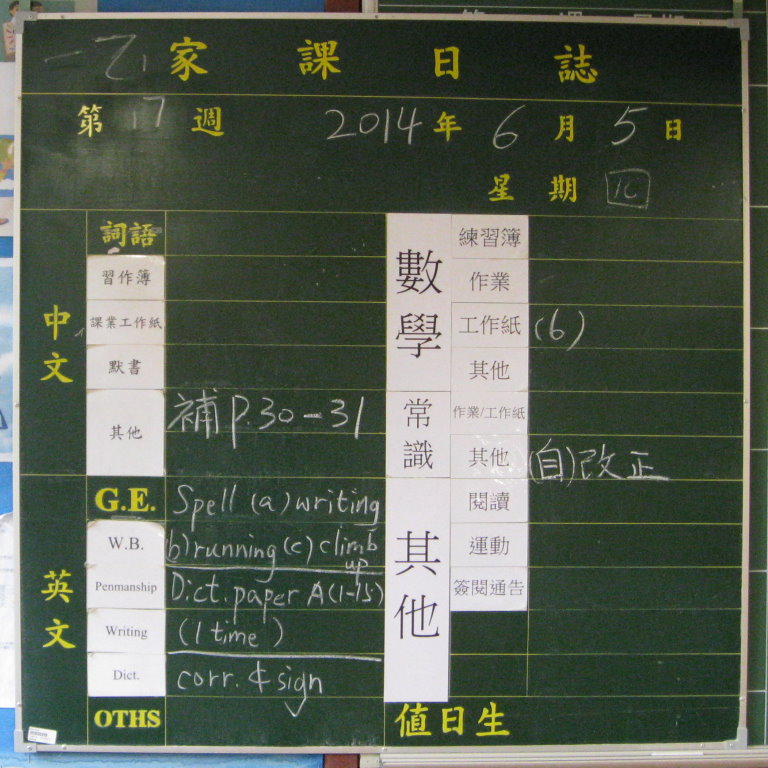 一乙家課日誌
第17週 2014年6月5日
星期
中文
詞語
習作簿
課業工作紙
默書
其他 補P.30-31
英文
G.E. Spell (a) writing
W.B. (b) running (c) climb up
Penmanship Dict. paper A (1-15)
Writing (1 time)
Dict. corr. & sign
OTHS
數學
練習簿
作業
工作紙 (6)
其他
常識
作業/工作紙
其他 (自)改正
其他
閱讀
運動
簽閱通告
值日生